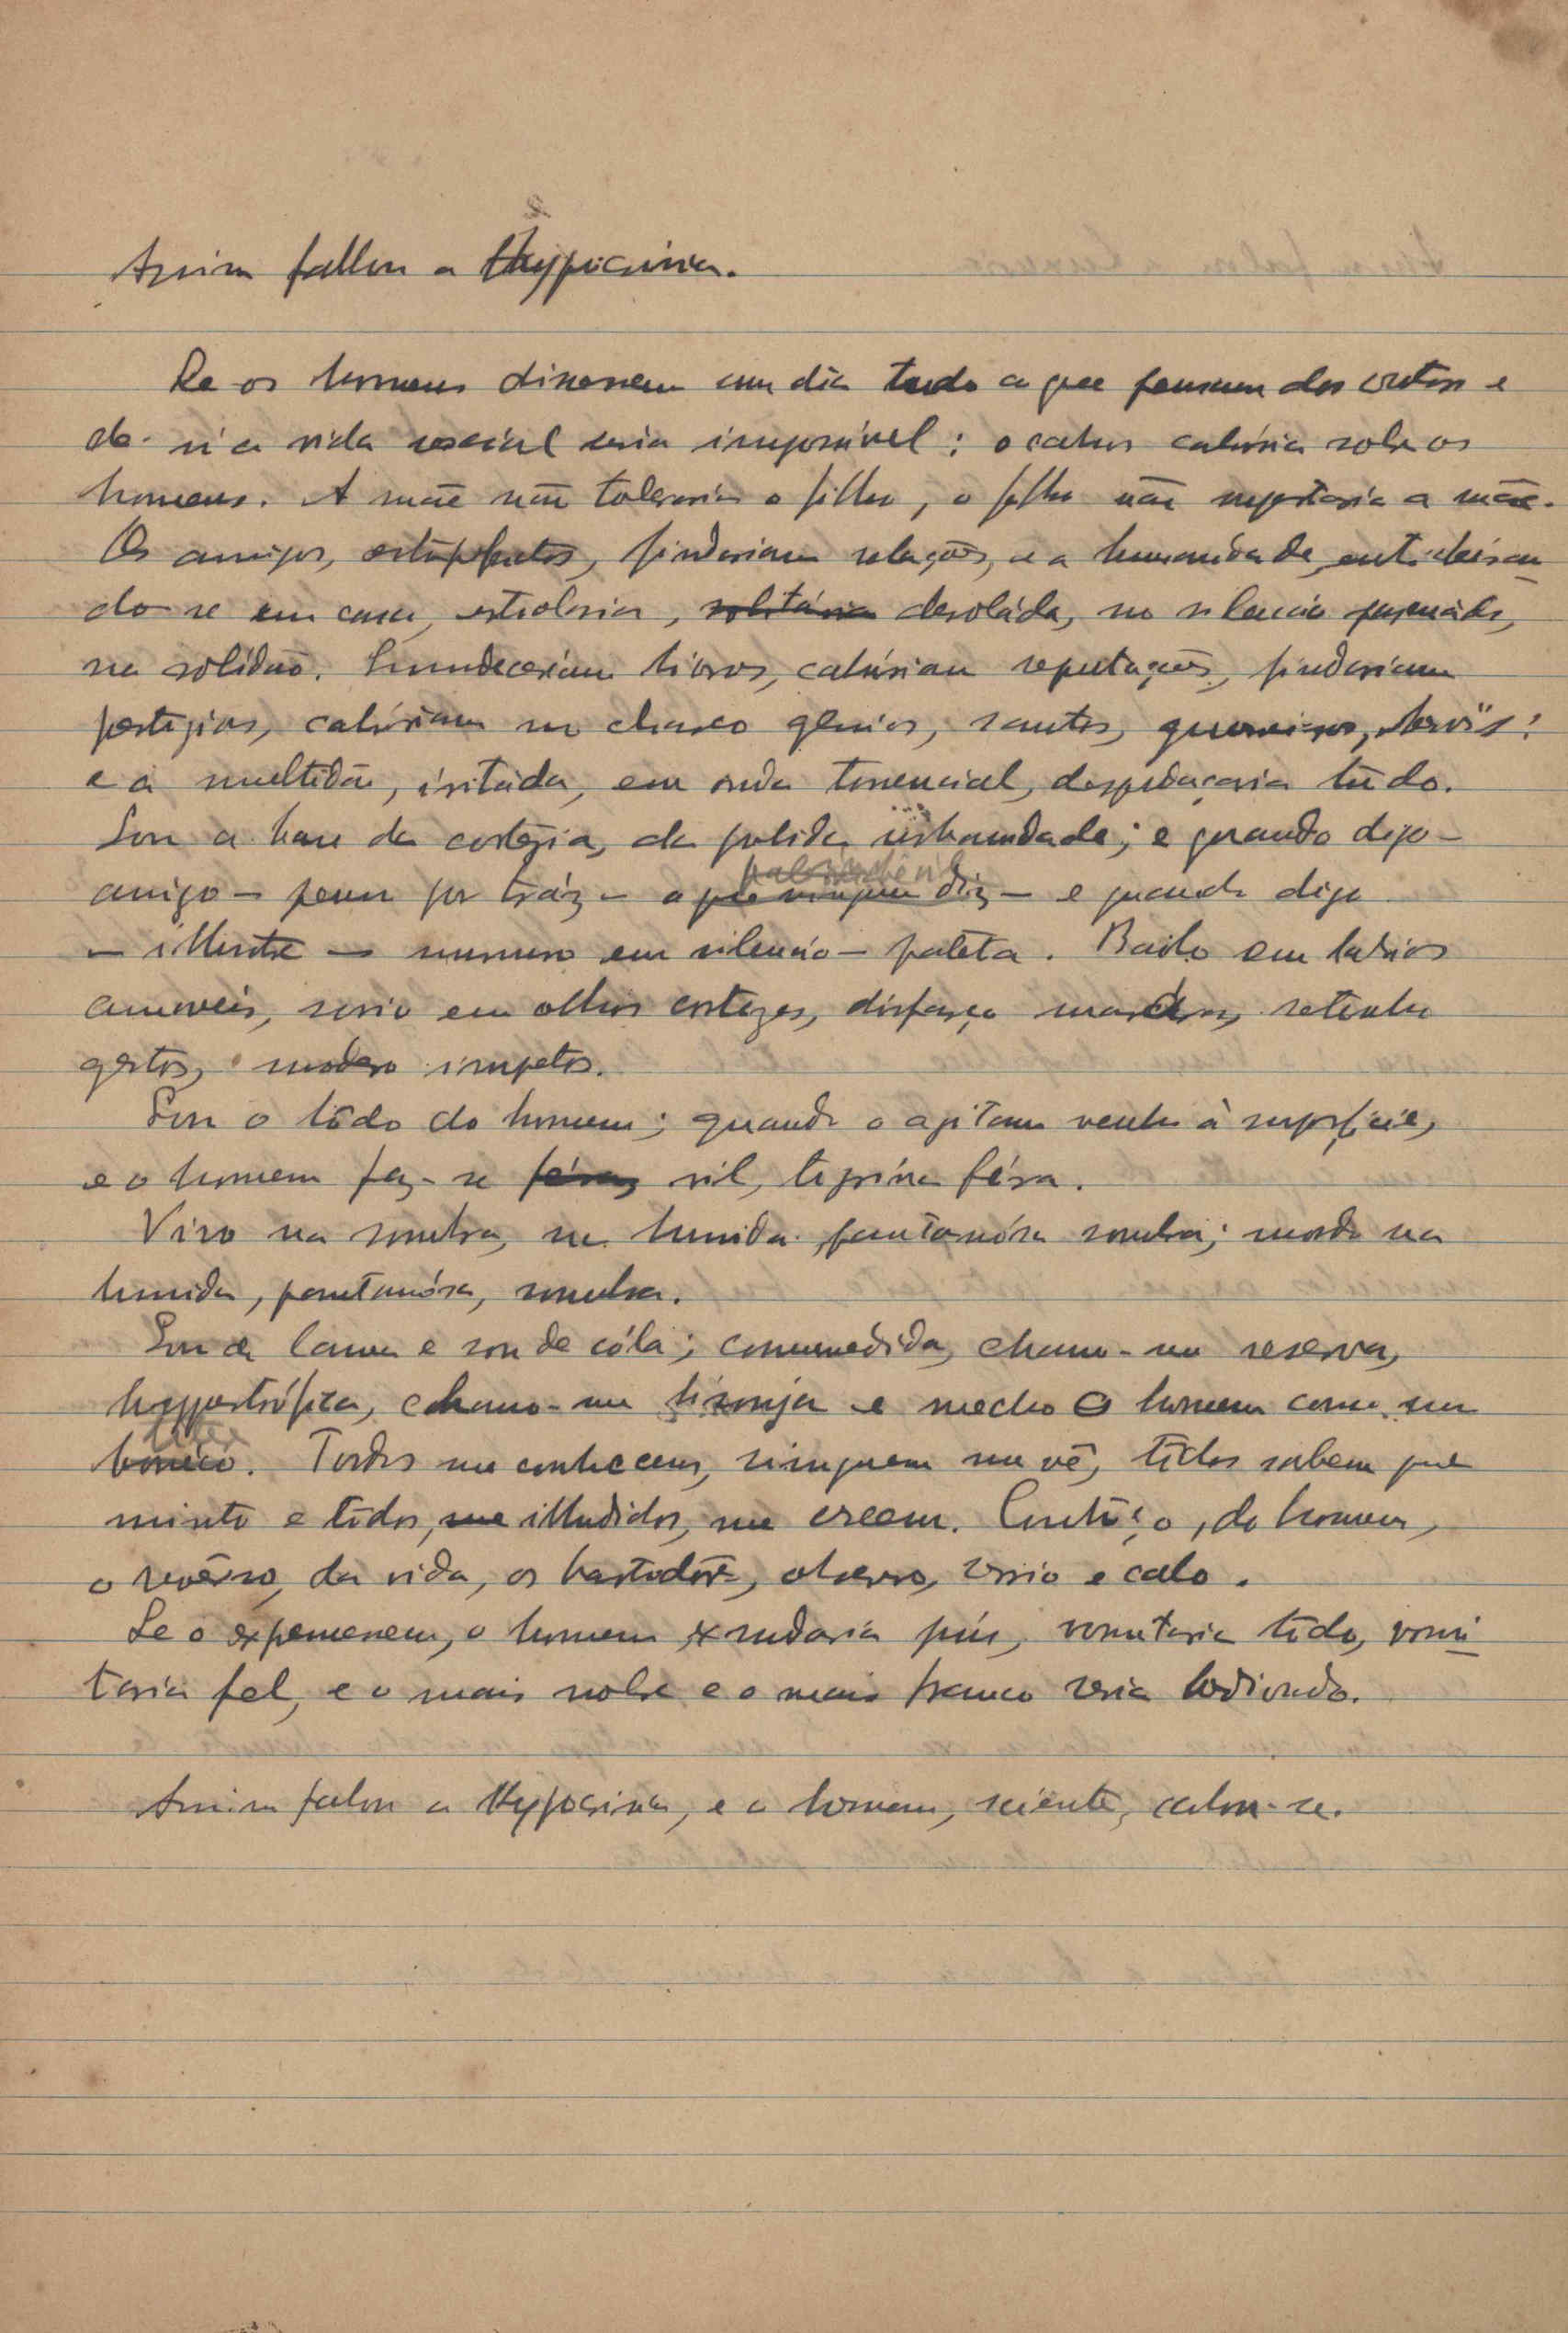 Assim fallou a Hypocrisia.
Se os homens dissessem um dia tudo o que pensam dos outros e
de si a vida social seria impossivel: o cahos cahiria sobre os
homens. A mãe não toleraria o filho, o filho não supportaria a mãe.
Os amigos, estupefactos, findariam relações, e a humanidade,
do-se em casa, estiolaria, solitária desoláda, no silencio
na solidão. livros, cahiriam reputações, findariam
prestigios, cahiriam no charco genios, santos, guerreiros, heróis:
e a multidão, iritáda, em onda torrencial, despedaçaria tudo.
Sou a base da cortezia, da polida urbanidade; e quando digo –
amigo – penso por tráz – o que ninguem diz – e quando digo
– illustre – murmuro em silencio – pateta. Bailo em labios
amaveis, sorrio em olhos cortezes, disfarço retenho
gestos, modero impetos.
Sou o lôdo do homem; quando o agitam venho á superficie,
e o homem faz-se féra, vil, tigrina féra.
Vivo na sombra, na humida pantanósa sombra; mordo na
humida, pantanósa, sombra.
Sou de lama e sou de cóla; commedida, chamo-me reserva,
hyppertrófica, chamo-me lisonja e mecho o homem como um
bonéco. Todos me conhecem, ninguem me vê, tôdos sabem que
minto e tôdos, me illudidos, me creem. Conheço, do homem,
o revérso, da vida, os bastidôres, observo, sorrio e calo.
Se o expremessem, o homem exsudaria pús, vomitaria lôdo, vomi
taria fel, e o mais nobre e o mais franco seria hediondo.
Assim falou a Hypocrisia, e o homem, sciente, calou-se.